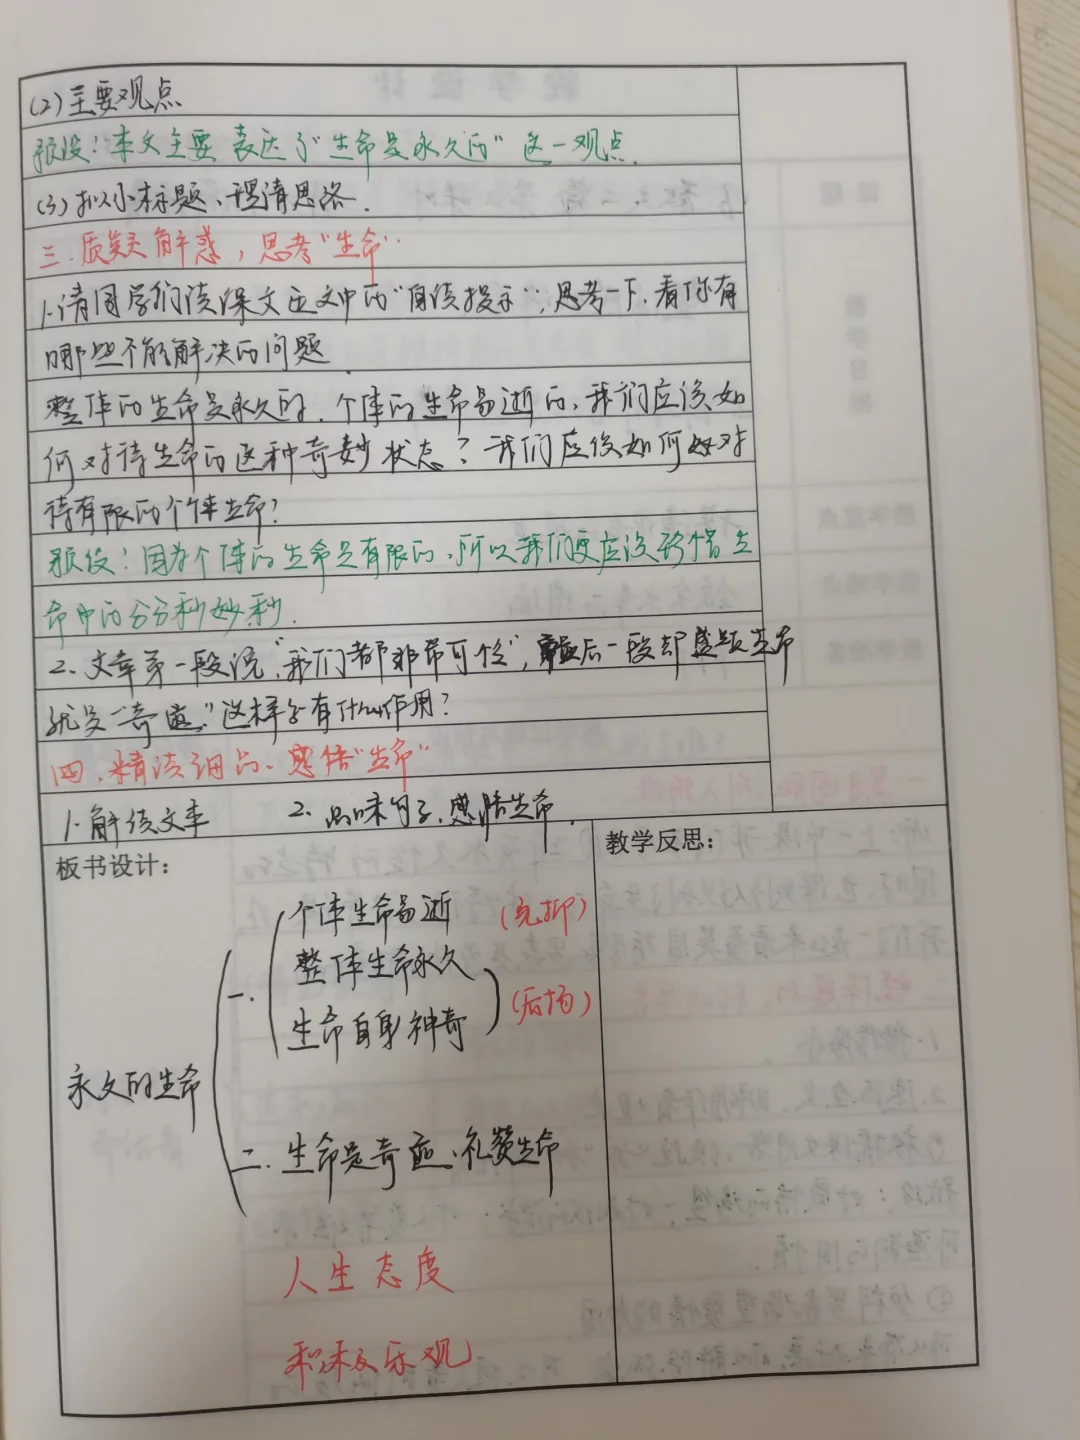 (2)主要观点
预设:“本文主要表达了“生命是永久的”这一观点.
(3)拟小标题、理清思路.
三.质疑解惑,思考“生命”
1.请同学们读课文正文中的“自读提示”,思考一下,看你有
哪些不能解决的问题.
整体的生命是永久的.个体的生命易逝的,我们应该如
何对待生命的这种奇妙状态?我们应该如何好对
待有限的个体生命?
预设:因为个体的生命是有限的,所以我们更应该珍惜生
命中的分分秒妙秒.
2.文章第一段说,“我们都非常可怜”,最后一段却感叹生命
就是“奇迹.”这样写有什么作用?
四、精读细品、感悟“生命”
1.解读文章 2.品味句子,感悟生命.
板书设计:
教学反思:
个体生命易逝 (先抑)
一.整体生命永久
生命自身神奇 (后扬)
永久的生命
二.生命是奇迹、礼赞生命
人生态度
积极乐观